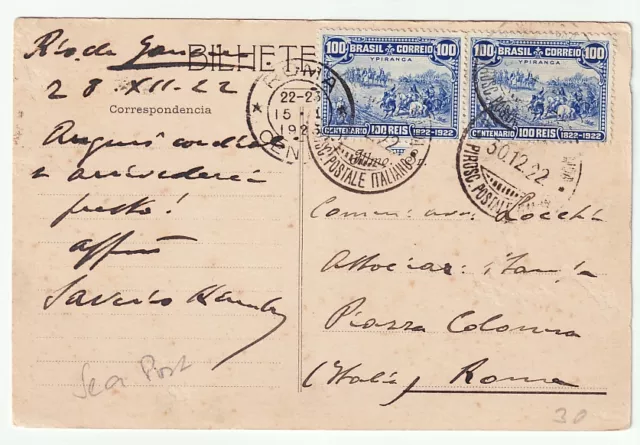 BILHETE
Rio de Janeiro
28 XII-22
Correspondencia
Auguri cordiali
e arrivederci
presto!
affmo
Saverio
Sea Post
100 BRASIL CORREIO 100
YPIRANGA
CENTENARIO 100 REIS 1822-1922
100 BRASIL CORREIO 100
YPIRANGA
CENTENARIO 100 REIS 1822-1922
ROMA
22-23
15
192
CEN
PIROSC. POSTALE ITALIANO
30.12.22
PIROSC. POSTALE
Associaz. Stampa
Piazza Colonna
(Italia) Roma
30